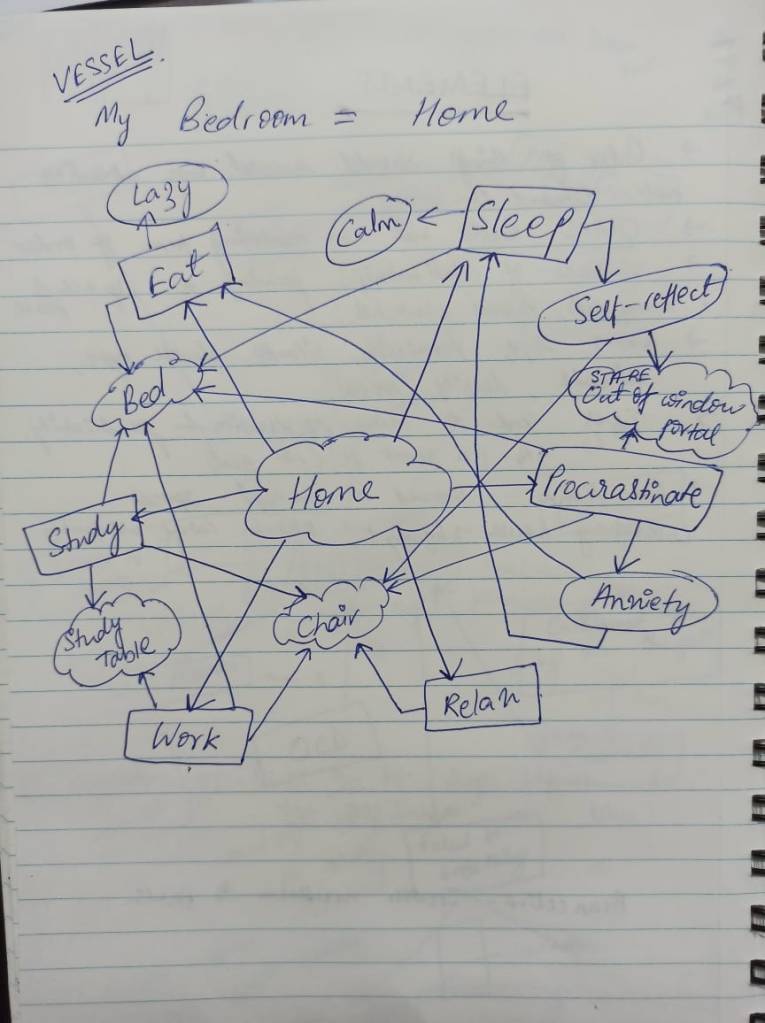 VESSEL.
My Bedroom = Home
Lazy
Eat
Calm
Sleep
Self-reflect
Bed
STARE
Out of window
portal
Home
Procrastinate
Study
Chair
Anxiety
Study
Table
Relax
Work